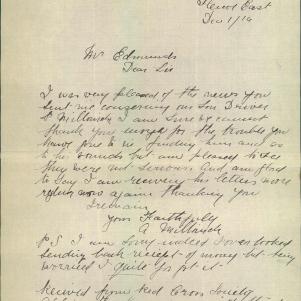 East
Dec 1/16
Mr Edmunds
Dear Sir
I was very pleased of the news you
sent me concerning our Son Driver
I am sure I cannot
thank you enough for the trouble you
have gone to in finding him and as
to his wounds but am pleased to see
they were not serious and am glad
to say I am receiving his letters more
again thanking you
I remain
Yours Faithfully
A
PS I am Sorry indeed I overlooked
sending back receipt of money but being
worried I quite forgot it
Received from Red Cross Society